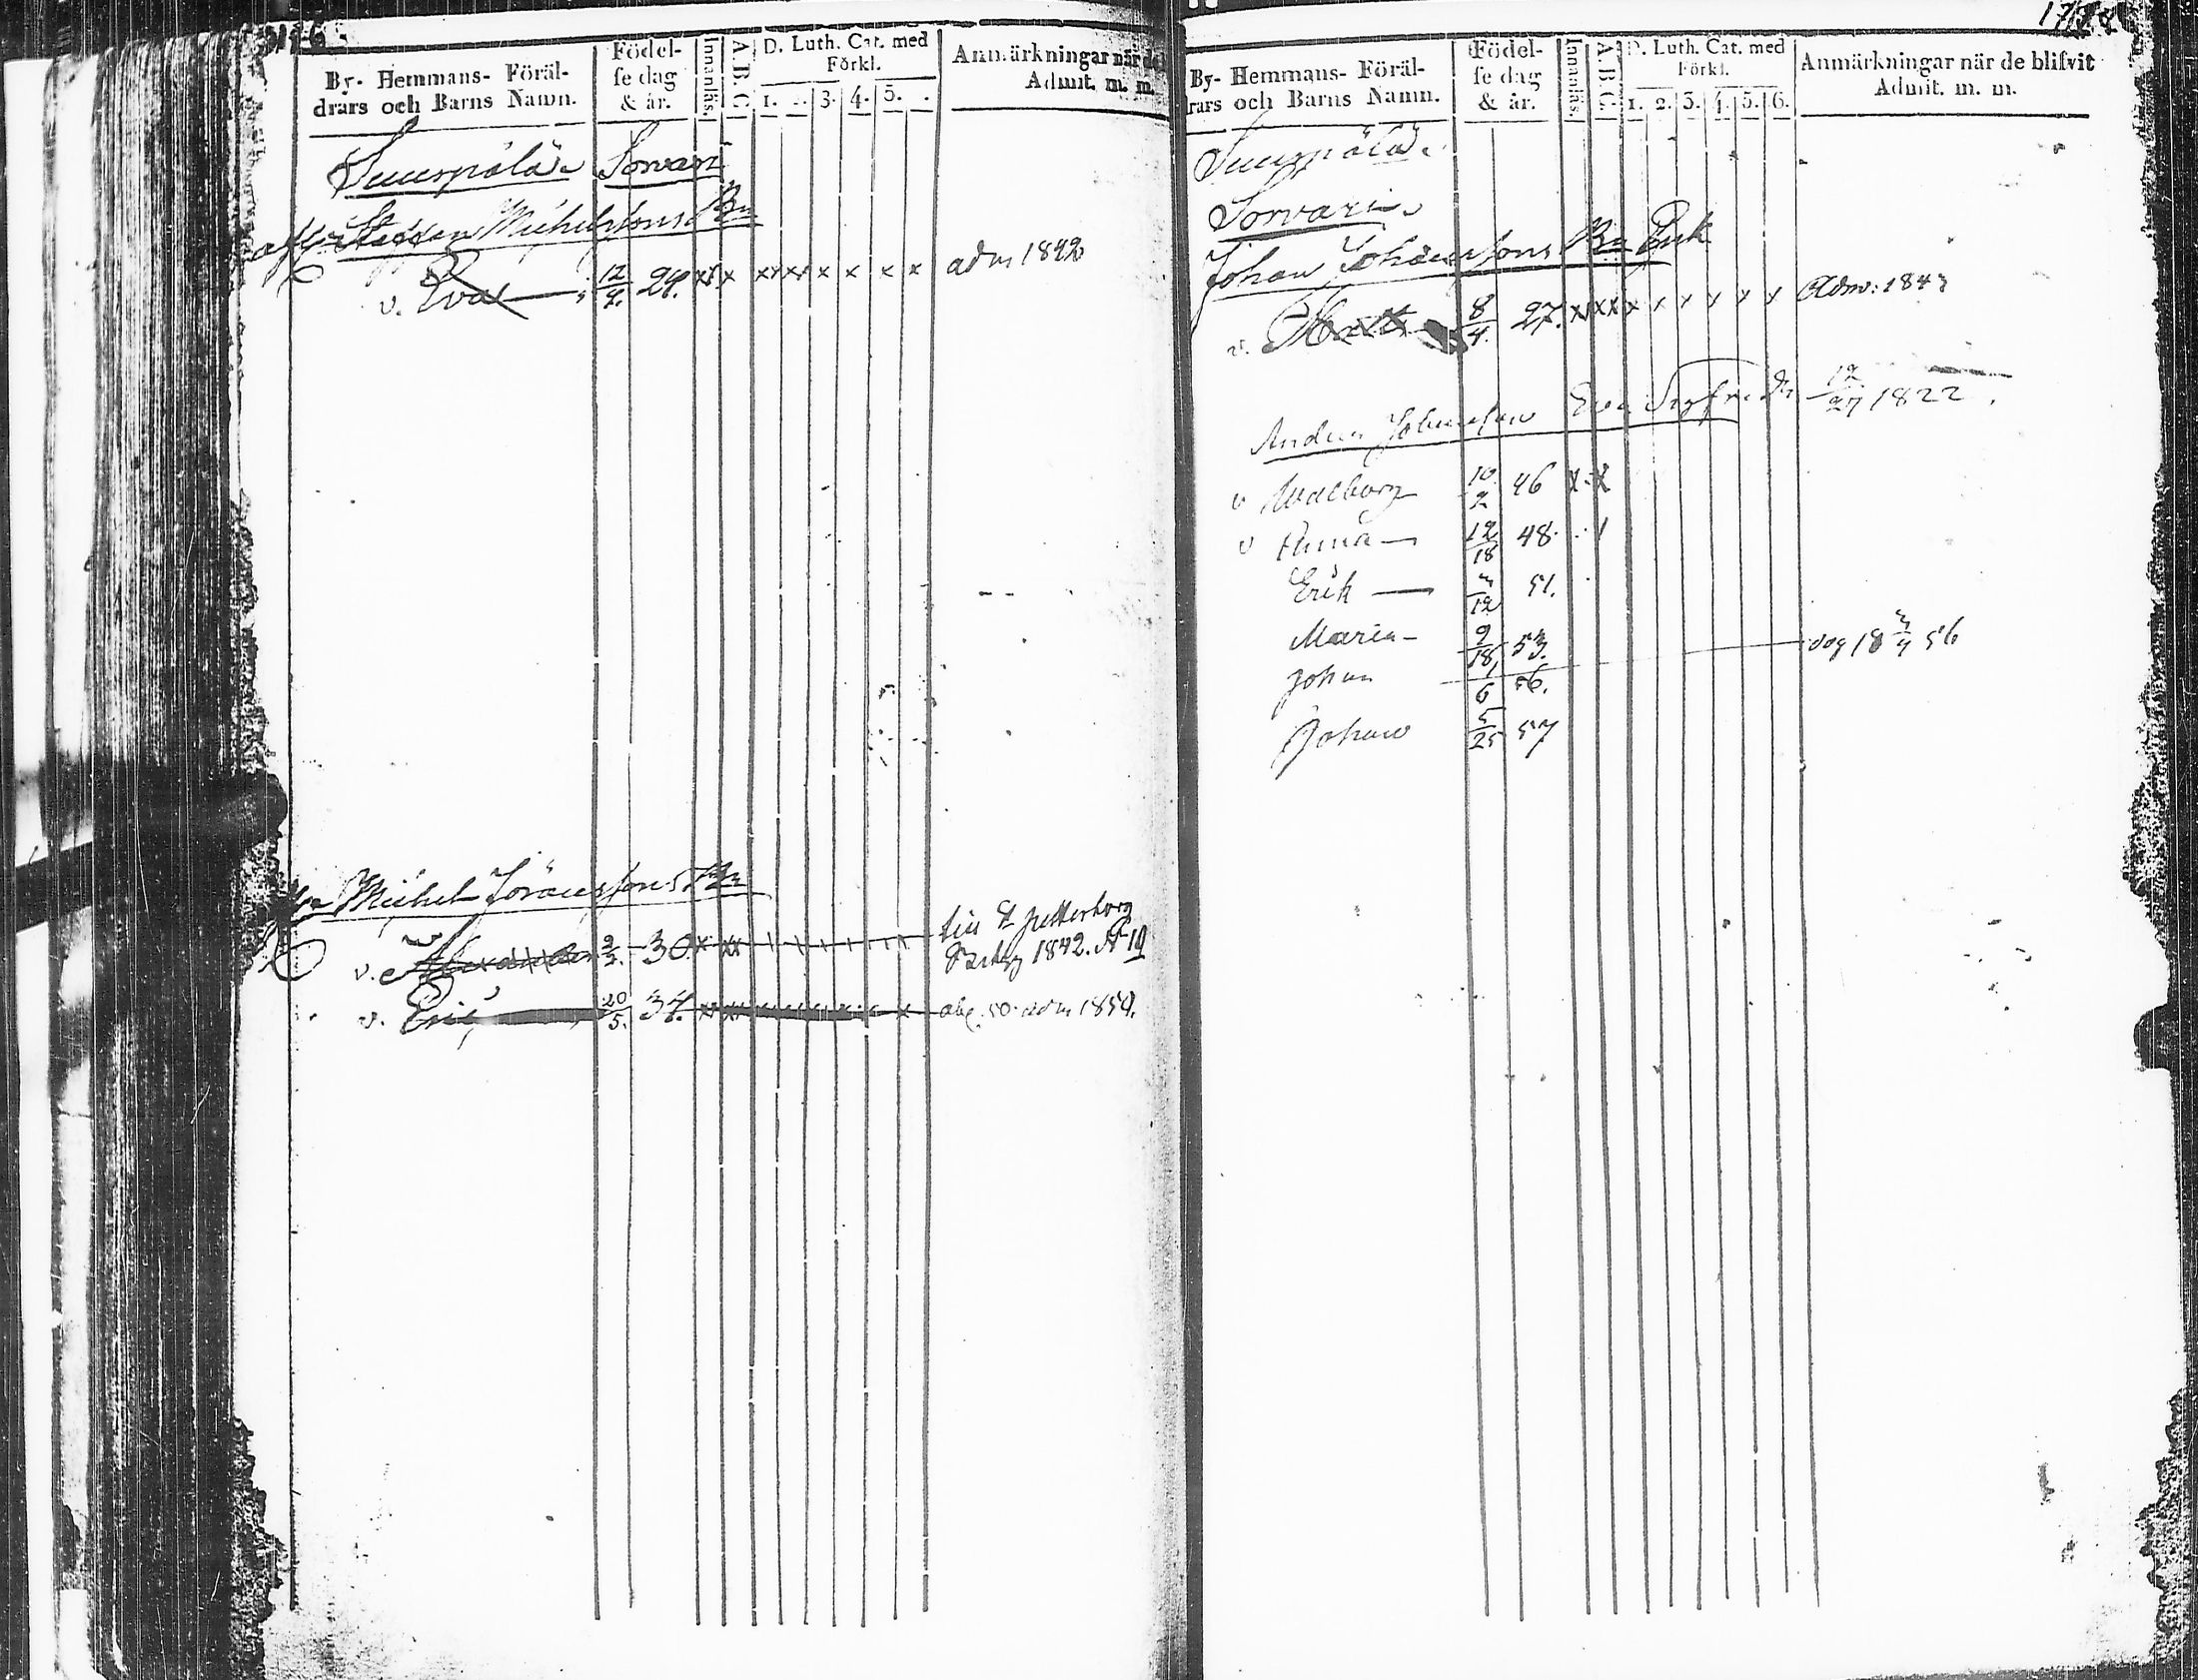 By- Hemmans- Föräl-
drars och Barns Namn.
Födel-
se dag
& år.
Innanläs.
A.B.C.
D. Luth. Cat. med
Förkl.
1. 3. 4. 5.
Anmärkningar när de
Admit. m. m.
Suurpälä Sorvari
Michelssons Bn
v. Eva 12/9. 29. x x x x x x x x x adm 1842
Michel Göranssons Bn
till St Petterborg
v. Alexander 2/2. 30. x xx 1842. No 19
v. Eric 20/5. 34. x x x x 1850.
By- Hemmans- Föräl-
rars och Barns Namn.
Födel-
se dag
& år.
Innanläs.
A.B.C.
D. Luth. Cat. med
Förkl.
1. 2. 3. 4. 5. 6.
Anmärkningar när de blifvit
Admit. m. m.
Suurpälä
Sorvari
Johan Johanssons Bn Erik
v. 8/4. 27. x x x x x x x x x Adm: 1843
Anders Johansson Eva Sigfrids 12/27 1822.
v Walborg 10/2 46 x x
v Anna — 12/18 48.
Erik — /12 51.
Maria — 9/18 53.
Johan 6 56. dog 18 56
Johan /25 57